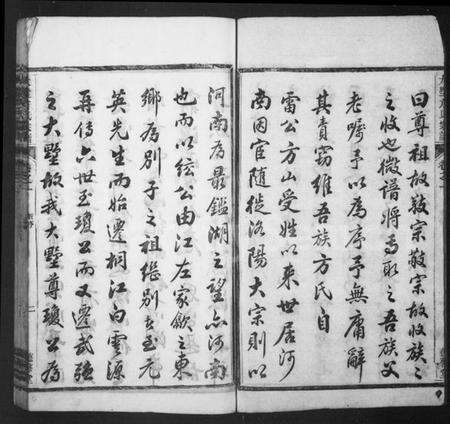 曰尊祖故敬宗敬宗故收族之
之收也微譜將焉取之吾族父
老囑予以為序予無庸辭
其責竊維吾族方氏自
雷公方山受姓以來世居河
南因宦隨徙洛陽大宗則以
河南為最鑑湖之望亦河南
也而以紘公由江左家歙之東
鄉為別子之祖繼別至元
英先生而始遷桐江白雲源
再傳六世至瓊公而又遷武強
之大墅故我大墅尊瓊公為